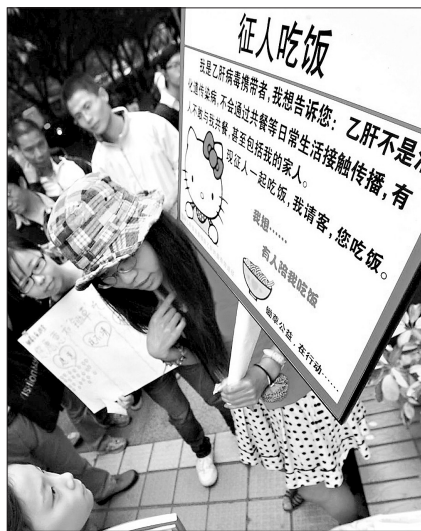 征人吃饭
我是乙肝病毒携带者,我想告诉您:乙肝不是消
化遗传染病,不会通过共餐等日常生活接触传播,有
人不敢与我共餐,甚至包括我的家人。
现征人一起吃饭,我请客,您吃饭。
我想……
有人陪我吃饭
公益,在行动……